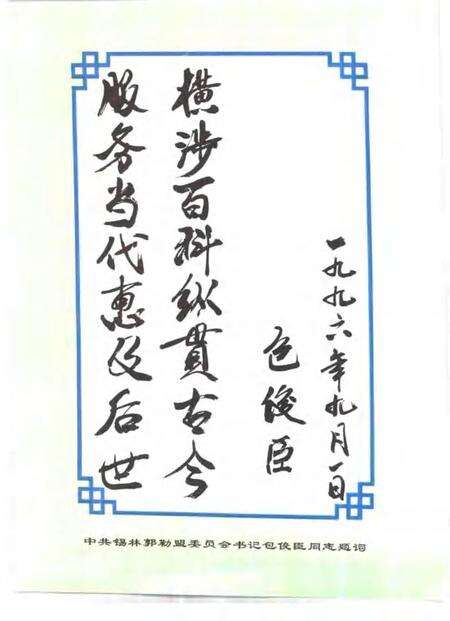 服务当代惠及后世
横涉百科纵贯古今
包俊臣
一九九六年九月一日
中共锡林郭勒盟委员会书记包俊臣同志题词